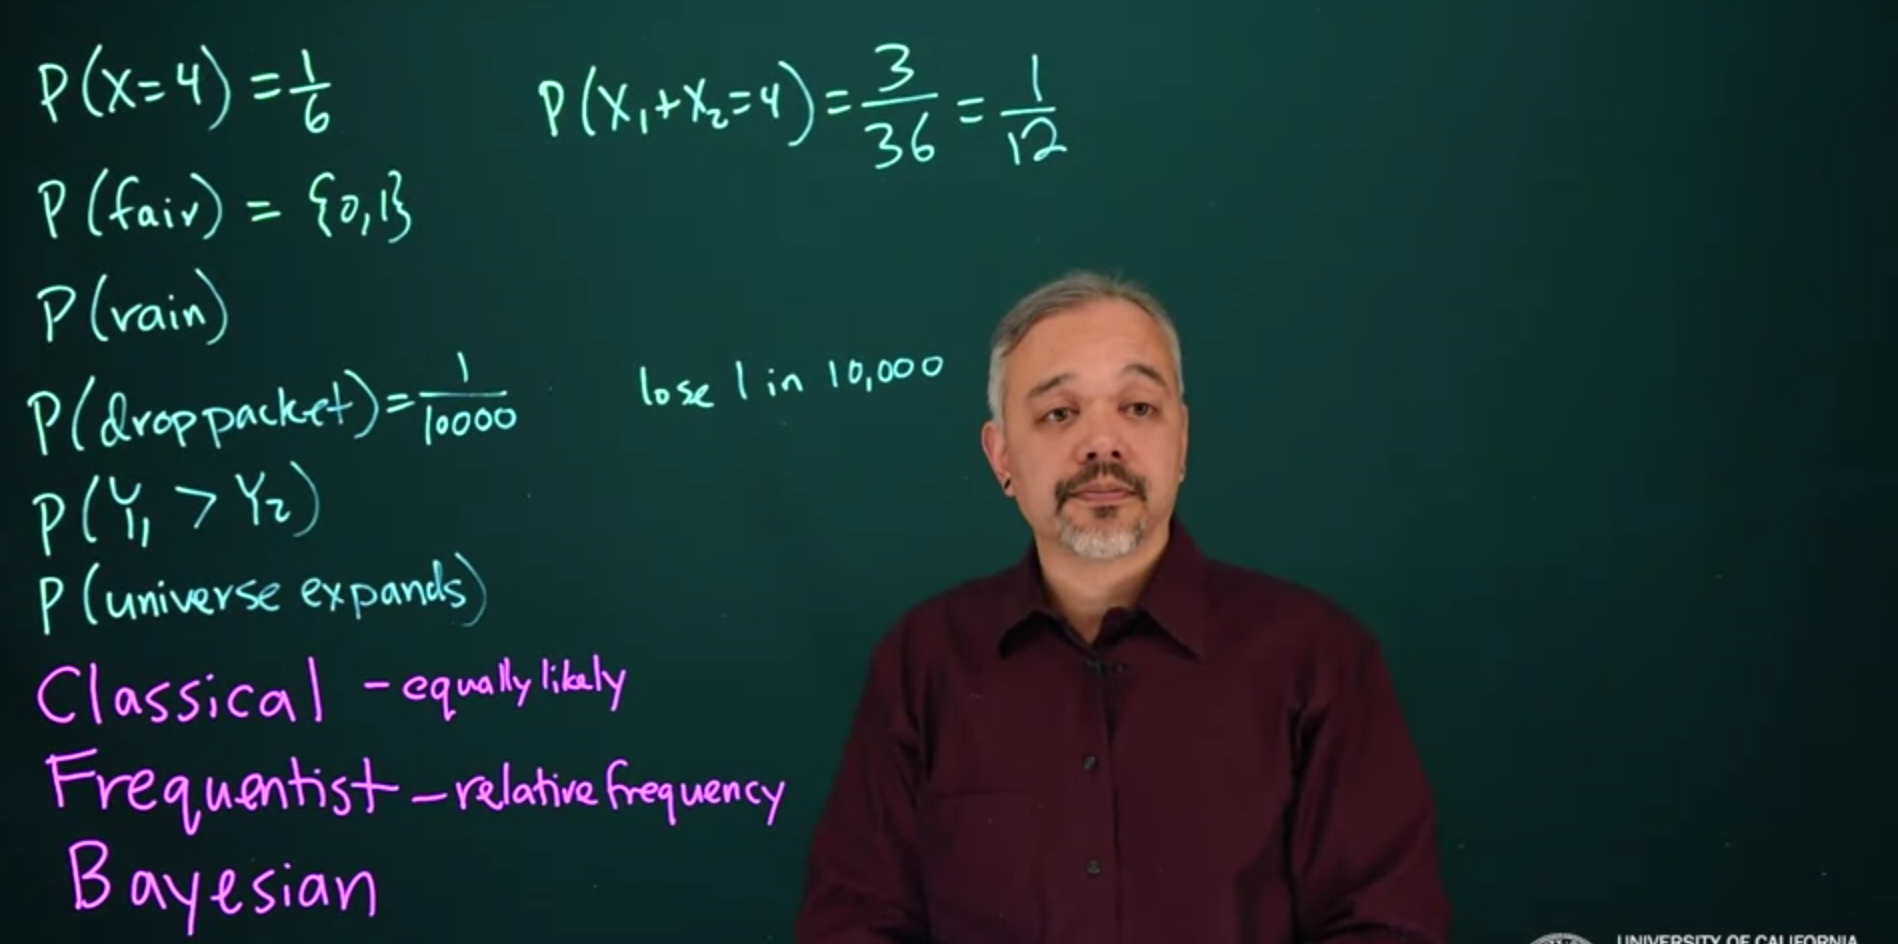 P(X=4) = 1/6
P(X₁+X₂=4) = 3/36 = 1/12
P(fair) = {0,1}
P(rain)
P(drop packet) = 1/10000
lose 1 in 10,000
P(Y₁ > Y₂)
P(universe expands)
Classical - equally likely
Frequentist - relative frequency
Bayesian
UNIVERSITY OF CALIFORNIA